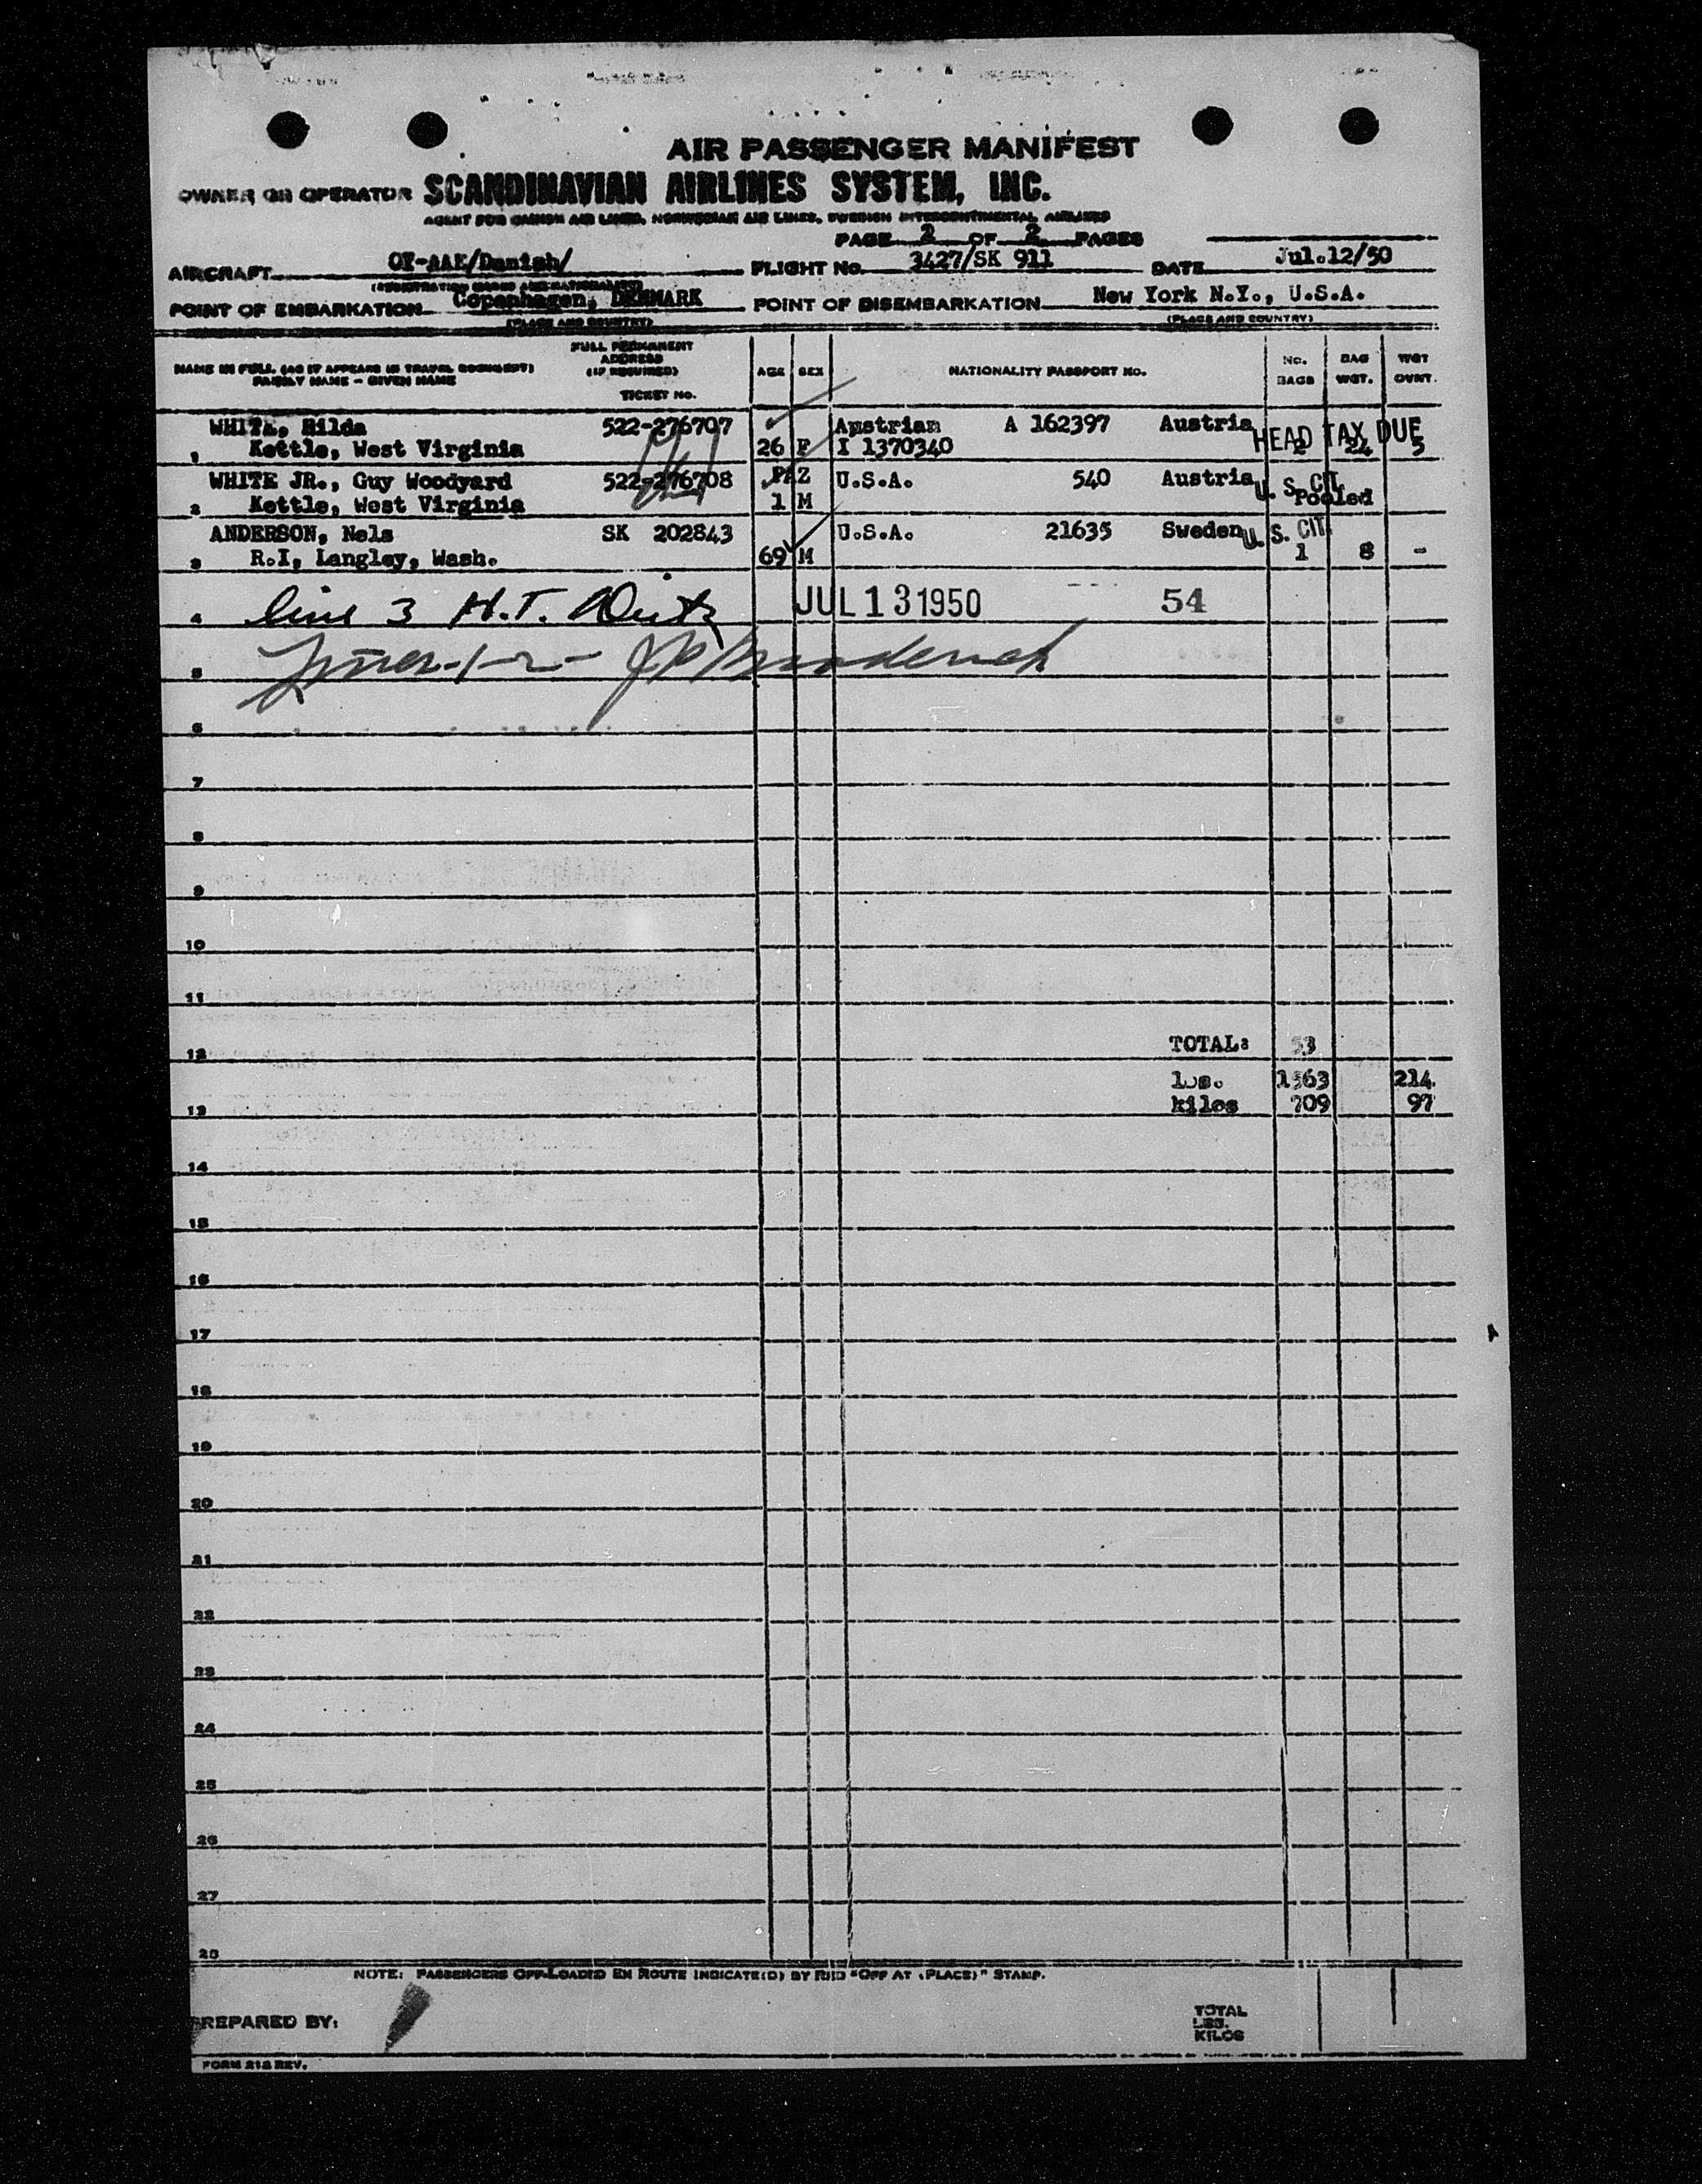 AIR PASSENGER MANIFEST
OWNER OR OPERATOR SCANDINAVIAN AIRLINES SYSTEM, INC.
AGENT FOR DANISH AIR LINES, NORWEGIAN AIR LINES, SWEDISH INTERCONTINENTAL AIRLINES
PAGE 2 OF 2 PAGES
AIRCRAFT OY-AAE/Danish/ FLIGHT No. 3427/SK 911 DATE Jul.12/50
(REGISTRATION MARKS AND NATIONALITY)
POINT OF EMBARKATION Copenhagen, DENMARK POINT OF DISEMBARKATION New York N.Y., U.S.A.
(PLACE AND COUNTRY) (PLACE AND COUNTRY)
NAME IN FULL (AS IT APPEARS IN TRAVEL DOCUMENT)
FAMILY NAME - GIVEN NAME
FULL PERMANENT
ADDRESS
(IF REQUIRED)
TICKET No.
AGE SEX NATIONALITY PASSPORT No. No. BAGS BAG WGT. WGT OVWT.
WHITE, Hilda 522-276707 Austrian A 162397 Austria HEAD TAX DUE
1 Kettle, West Virginia 26 F I 1370340 2 24 5
WHITE JR., Guy Woodyard 522-276708 U.S.A. 540 Austria U. S. CIT.
2 Kettle, West Virginia 1 M Pooled
ANDERSON, Nels SK 202843 U.S.A. 21635 Sweden U. S. CIT.
3 R.I, Langley, Wash. 69 M 1 8 -
4 line 3 H.T. JUL 13 1950 54
5 Lines-1-2-
6
7
8
9
10
11
12 TOTAL: 53
lbs. 1563 214.
13 kilos 709 97
14
15
16
17
18
19
20
21
22
23
24
25
26
27
28
NOTE: PASSENGERS OFF-LOADED EN ROUTE INDICATE(D) BY RED "OFF AT (PLACE)" STAMP.
PREPARED BY:
TOTAL
LBS.
KILOS
FORM 218 REV.